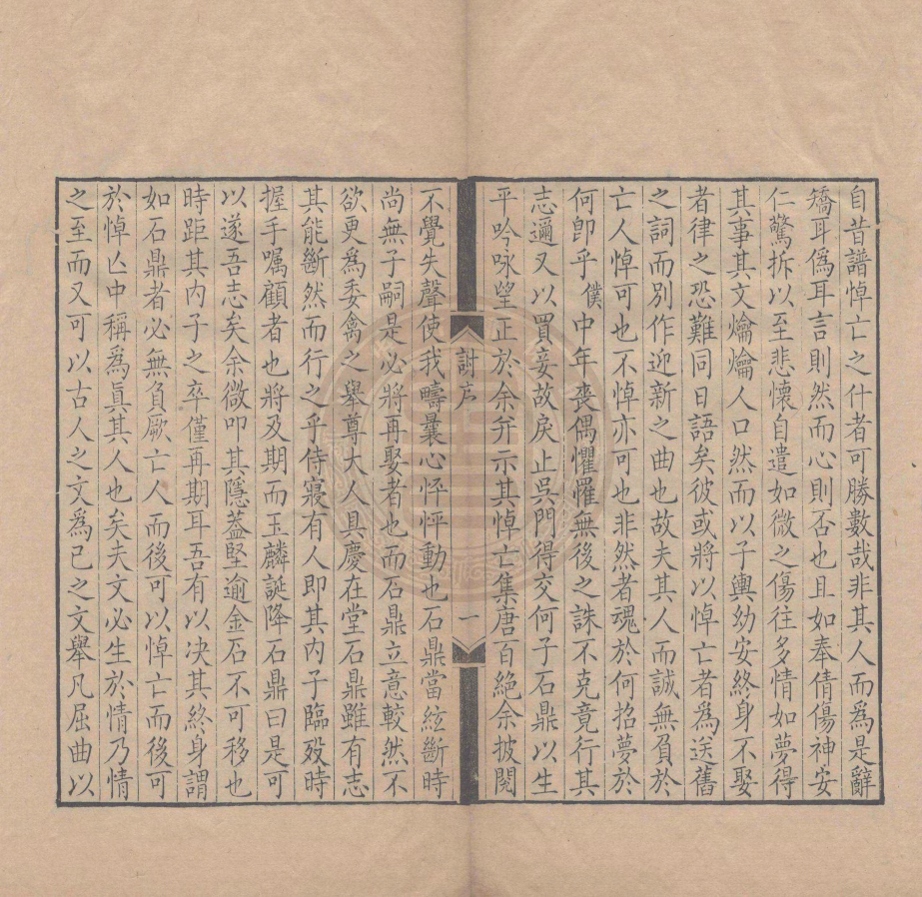 自昔譜悼亡之什者可勝數哉非其人而爲是辭
矯耳僞耳言則然而心則否也且如奉倩傷神安
仁驚拆以至悲懷自遣如微之傷往多情如夢得
其事其文爚爚人口然而以子輿幼安終身不娶
者律之恐難同日語矣彼或將以悼亡者爲送舊
之詞而別作迎新之曲也故夫其人而誠無負於
亡人悼可也不悼亦可也非然者魂於何招夢於
何卽乎僕中年喪偶懼罹無後之誅不克竟行其
志邇又以買妾故戾止吳門得交何子石鼎以生
平吟咏望正於余幷示其悼亡集唐百絶余披閱
謝序
一
不覺失聲使我疇曩心怦怦動也石鼎當絃斷時
尚無子嗣是必將再娶者也而石鼎立意較然不
欲更爲委禽之舉尊大人具慶在堂石鼎雖有志
其能斷然而行之乎侍寢有人即其內子臨歿時
握手嘱顧者也將及期而玉麟誕降石鼎曰是可
以遂吾志矣余微叩其隱葢堅逾金石不可移也
時距其内子之卒僅再期耳吾有以决其終身謂
如石鼎者必無負厥亡人而後可以悼亡而後可
於悼亾中稱爲眞其人也矣夫文必生於情乃情
之至而又可以古人之文爲已之文舉凡屈曲以